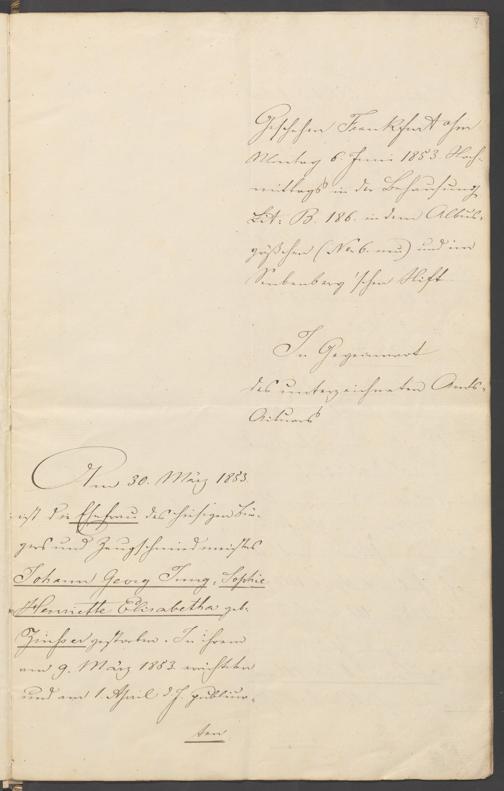 Geschehen Frankfurt a/m
Montag 6. Juni 1853. Nach-
mittags in der Behausung
Lit: B. 186. in dem Albus-
gäßchen (No 6. neu) und im
Senkenberg'schen Stift
In Gegenwart
des unterzeichneten Amts-
Actuars
Am 30. März 1853.
ist die Ehefrau des hiesigen Bür-
gers und Zeugschmiedmeisters
Johann Georg Jung, Sophie
Henriette Elisabetha geb.
gestorben. In ihrem
am 9. März 1853. errichteten
und am 1. April d. J. publicir-
ten